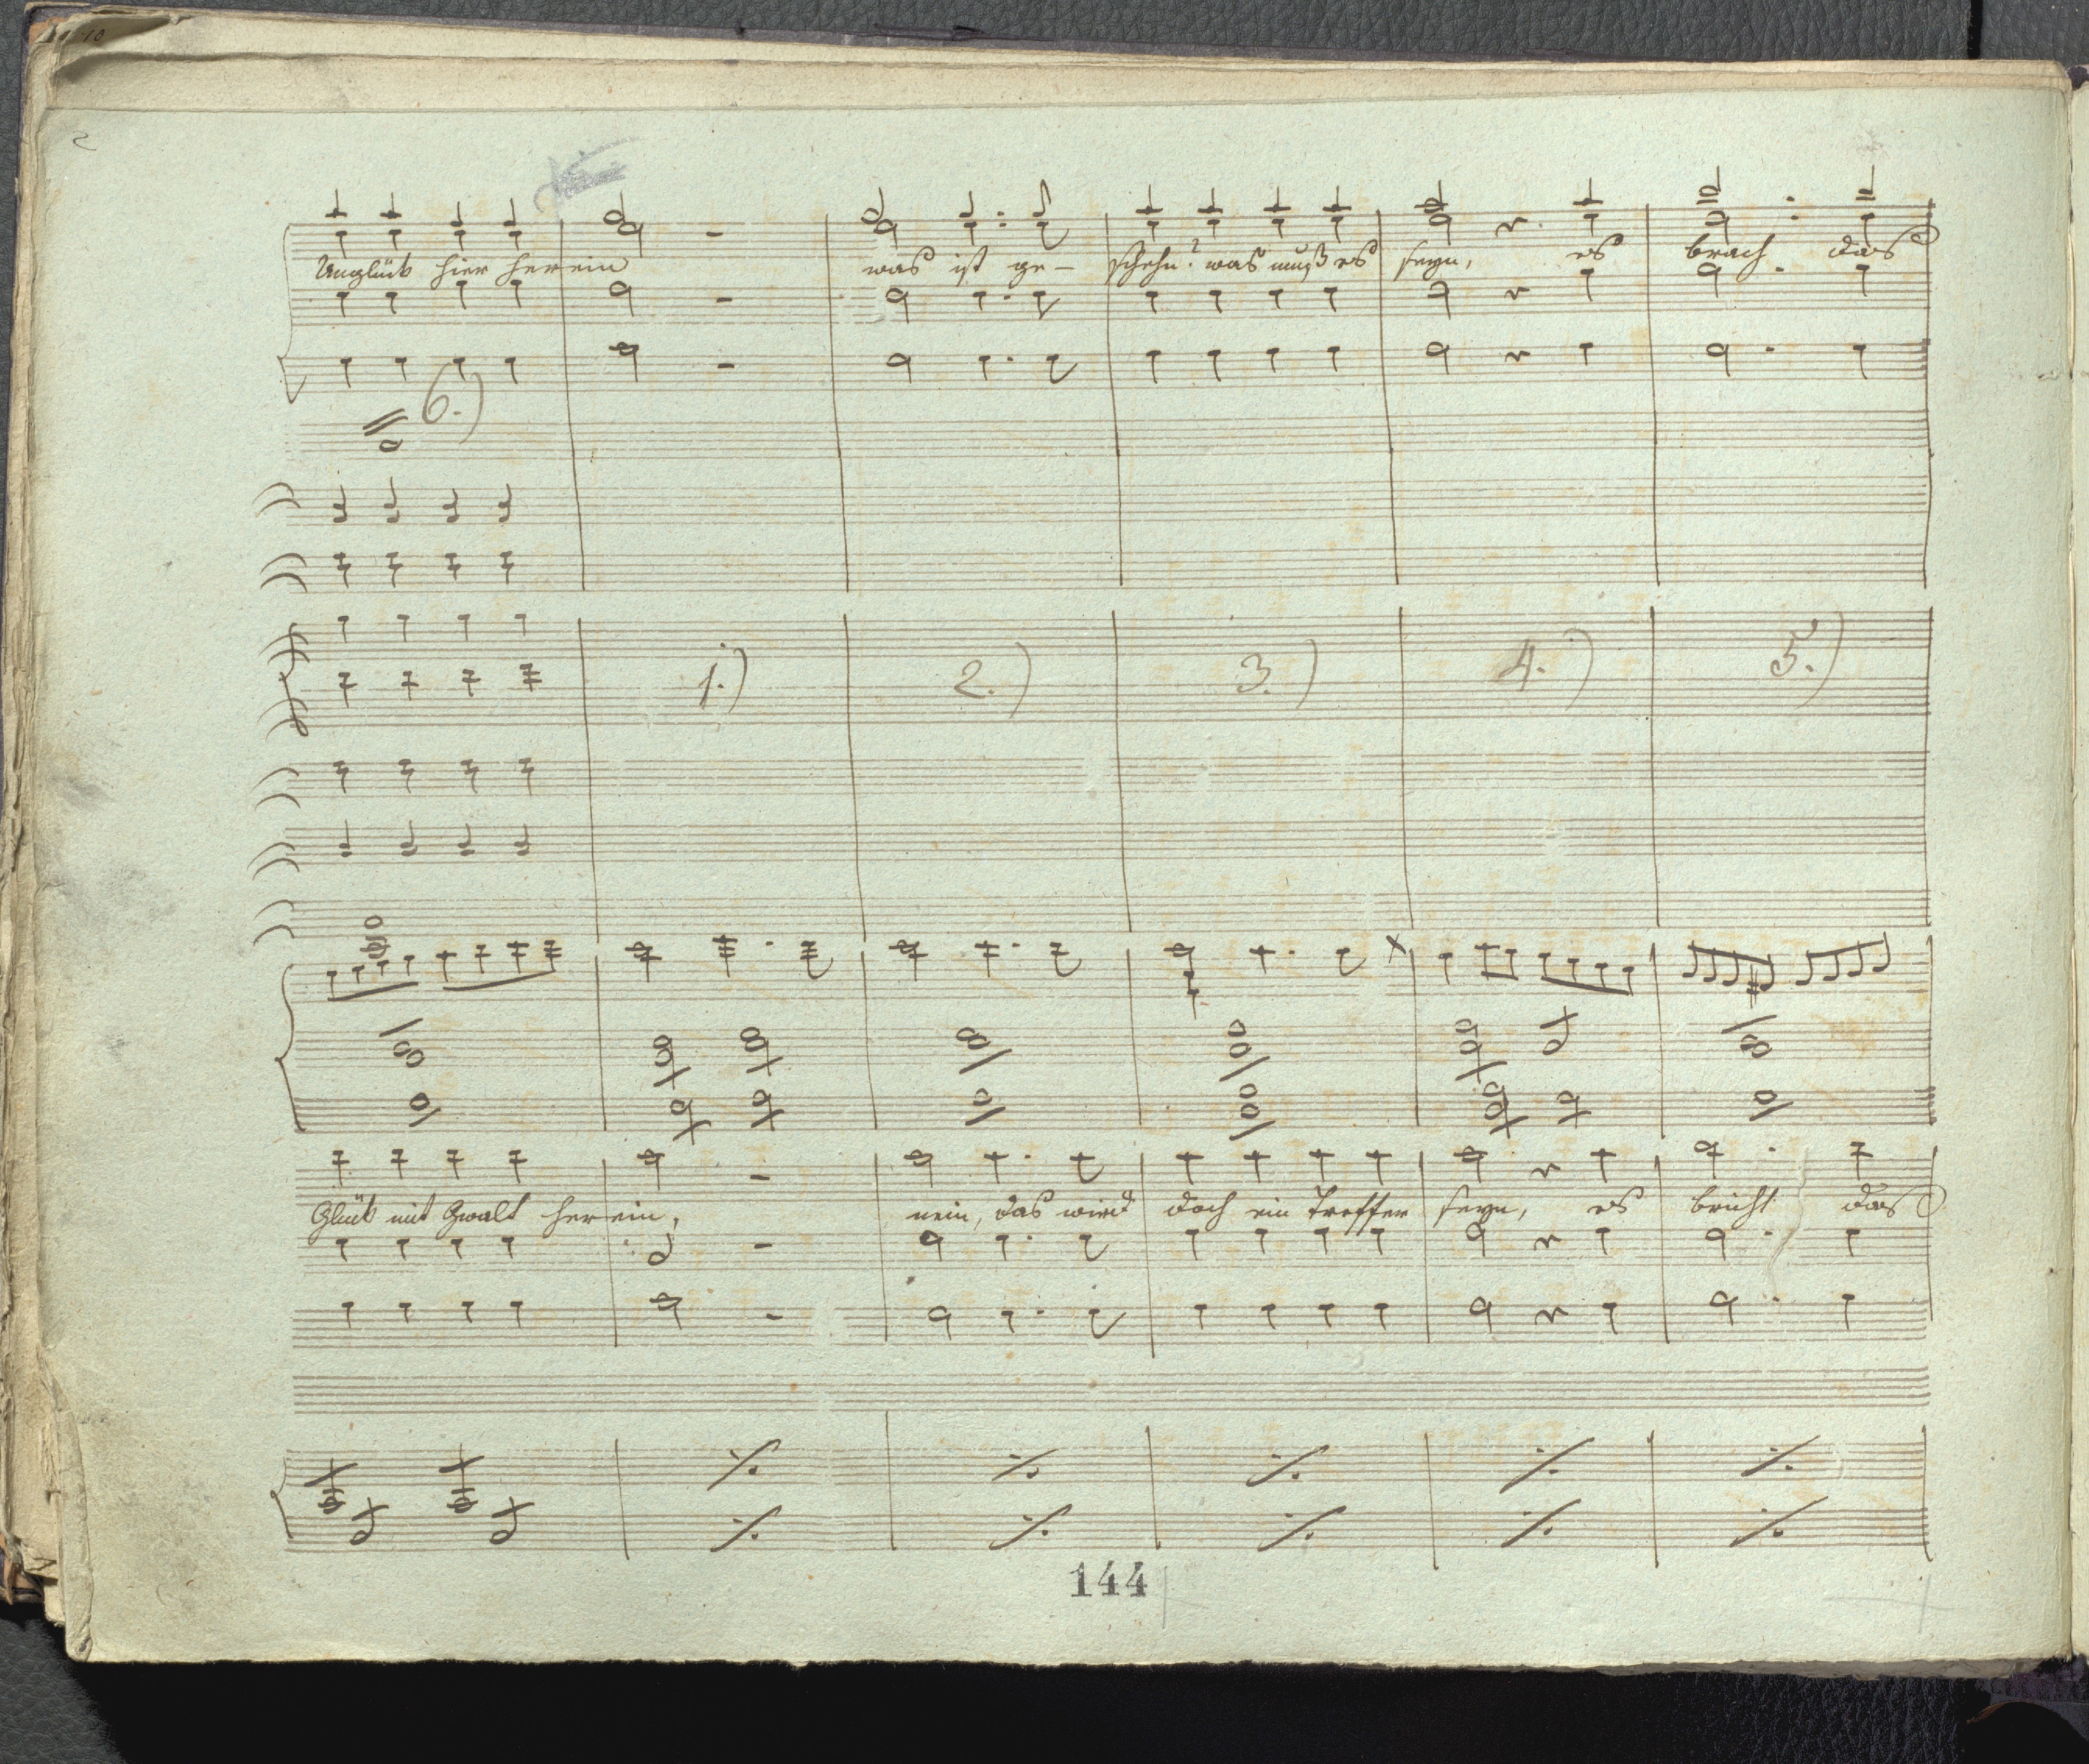 10
2
Unglück hier herein was ist ge- schehn? was muß es seyn, es brach das
6.)
1.) 2.) 3.) 4.) 5.)
Glück mit Gwalt herein, nein, das wird doch ein Treffer seyn, es bricht das
144